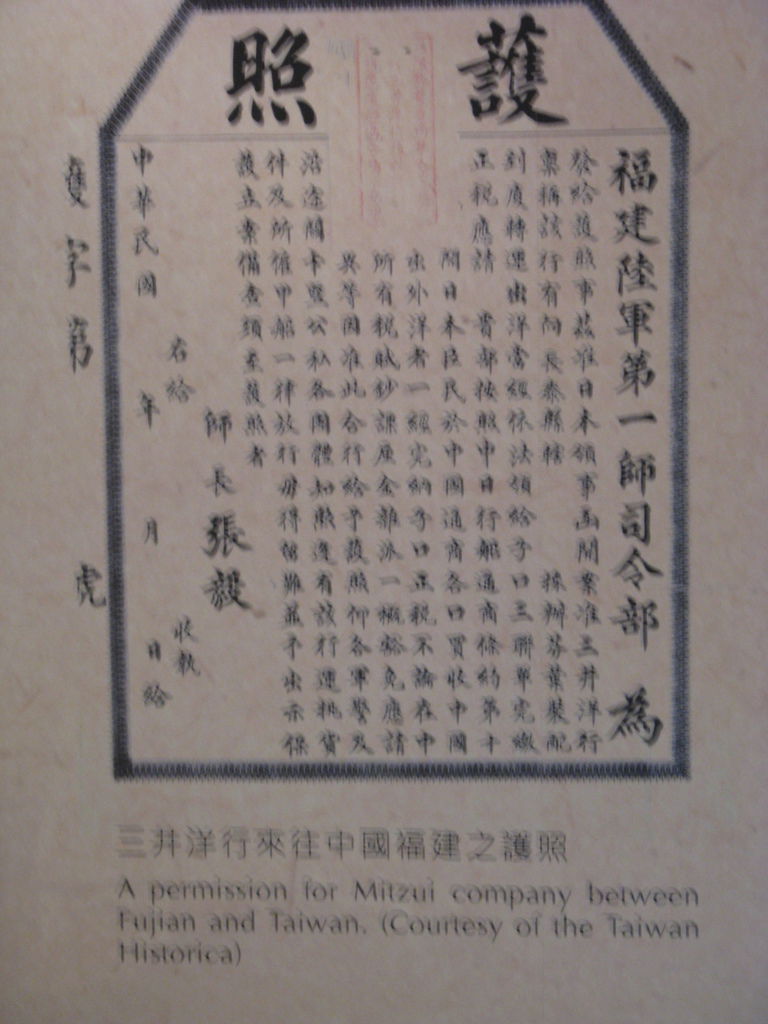 護照
福建陸軍第一師司令部 為
發給護照事茲准日本領事函開案准三井洋行
稟稱該行有向長泰縣轄 採辦芬葉裝配
到廈轉運出洋當經依法領給子口三聯單完繳
正稅應請 貴部按照中日行船通商條約第十
間日本臣民於中國通商各口買收中國
出外洋者一經完納子口正稅不論在中
所有稅賦鈔課厘金雜派一概豁免應請
異等因准此合行給予護照仰各軍警及
沿途關卡暨公私各團體知照遇有該行運執貨
件及所僱甲船一律放行毋得留難並予出示保
護立案備查須至護照者
師長張毅
右給 收執
中華民國 年 月 日給
護字第 號
三井洋行來往中國福建之護照
A permission for Mitzui company between
Fujian and Taiwan. (Courtesy of the Taiwan
Historica)